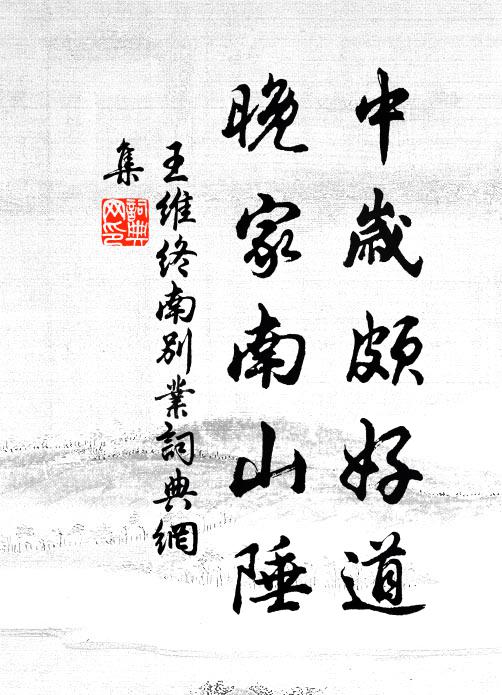 中歲頗好道
晚家南山陲
王維終南別業詞典網
集
詞典
网印